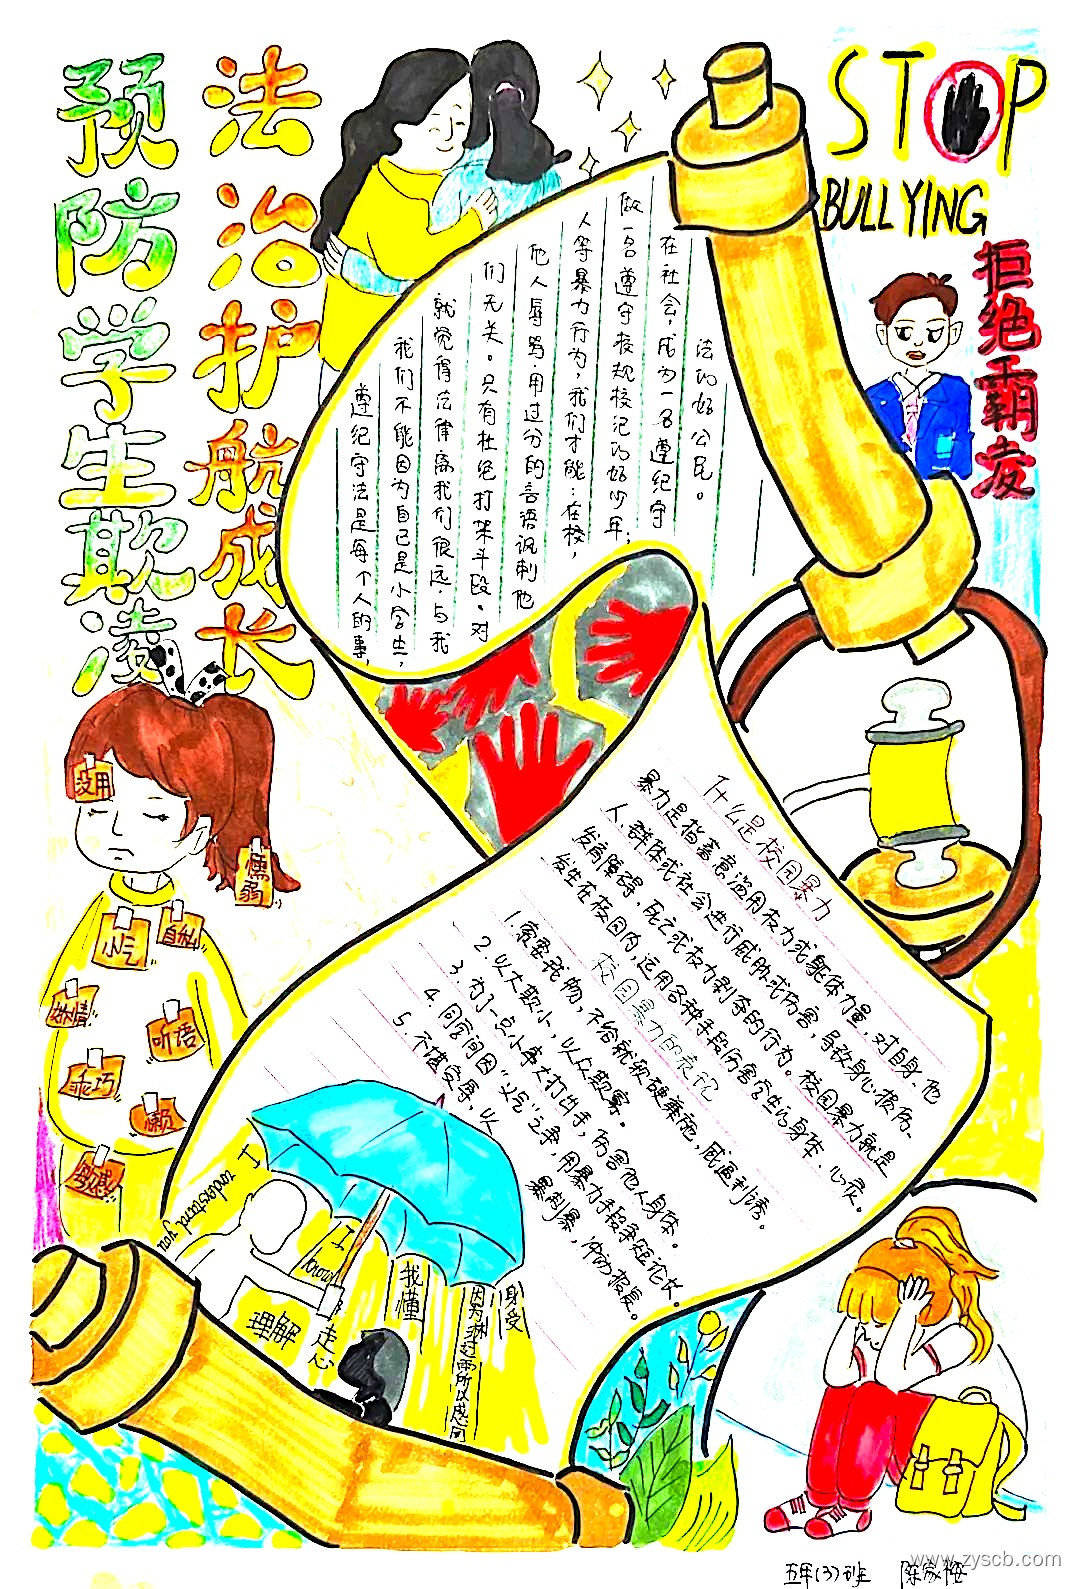 法治护航成长
预防学生欺凌
STOP
BULLYING
拒绝霸凌
遵纪守法是每个人的事,
我们不能因为自己是小学生,
就觉得法律离我们很远,与我
们无关。只有杜绝打架斗殴。对
他人辱骂.用过分的言语讽刺他
人等暴力行为,我们才能:在校,
做一名遵守校规校记的好少年;
在社会,成为一名遵纪守
法的好公民。
什么是校园暴力
暴力是指蓄意滥用权力或躯体力量,对自身、他
人、群体或社会进行威胁或伤害,导致身心损伤、
发育障碍,死亡或权力剥夺的行为。校园暴力就是
发生在校园内,运用各种手段伤害学生的身体、心灵。
校园暴力的表现
1.索要钱物,不给就软硬兼施,威逼利诱。
2.以大欺小,以众欺寡。
3.为了一点小事大打出手,伤害他人身体。
4.同学间因"义气"之争,用暴力手段争短论长。
5.不堪受辱,以
暴制暴,冲动报复。
没用
懦弱
小气
自私
矫情
听话
乖巧
懒
敏感
I understand you
I know
理解
走心
我懂
因为淋过雨所以感同
身受
五年(3)班 陈家梅
www.zyscb.com